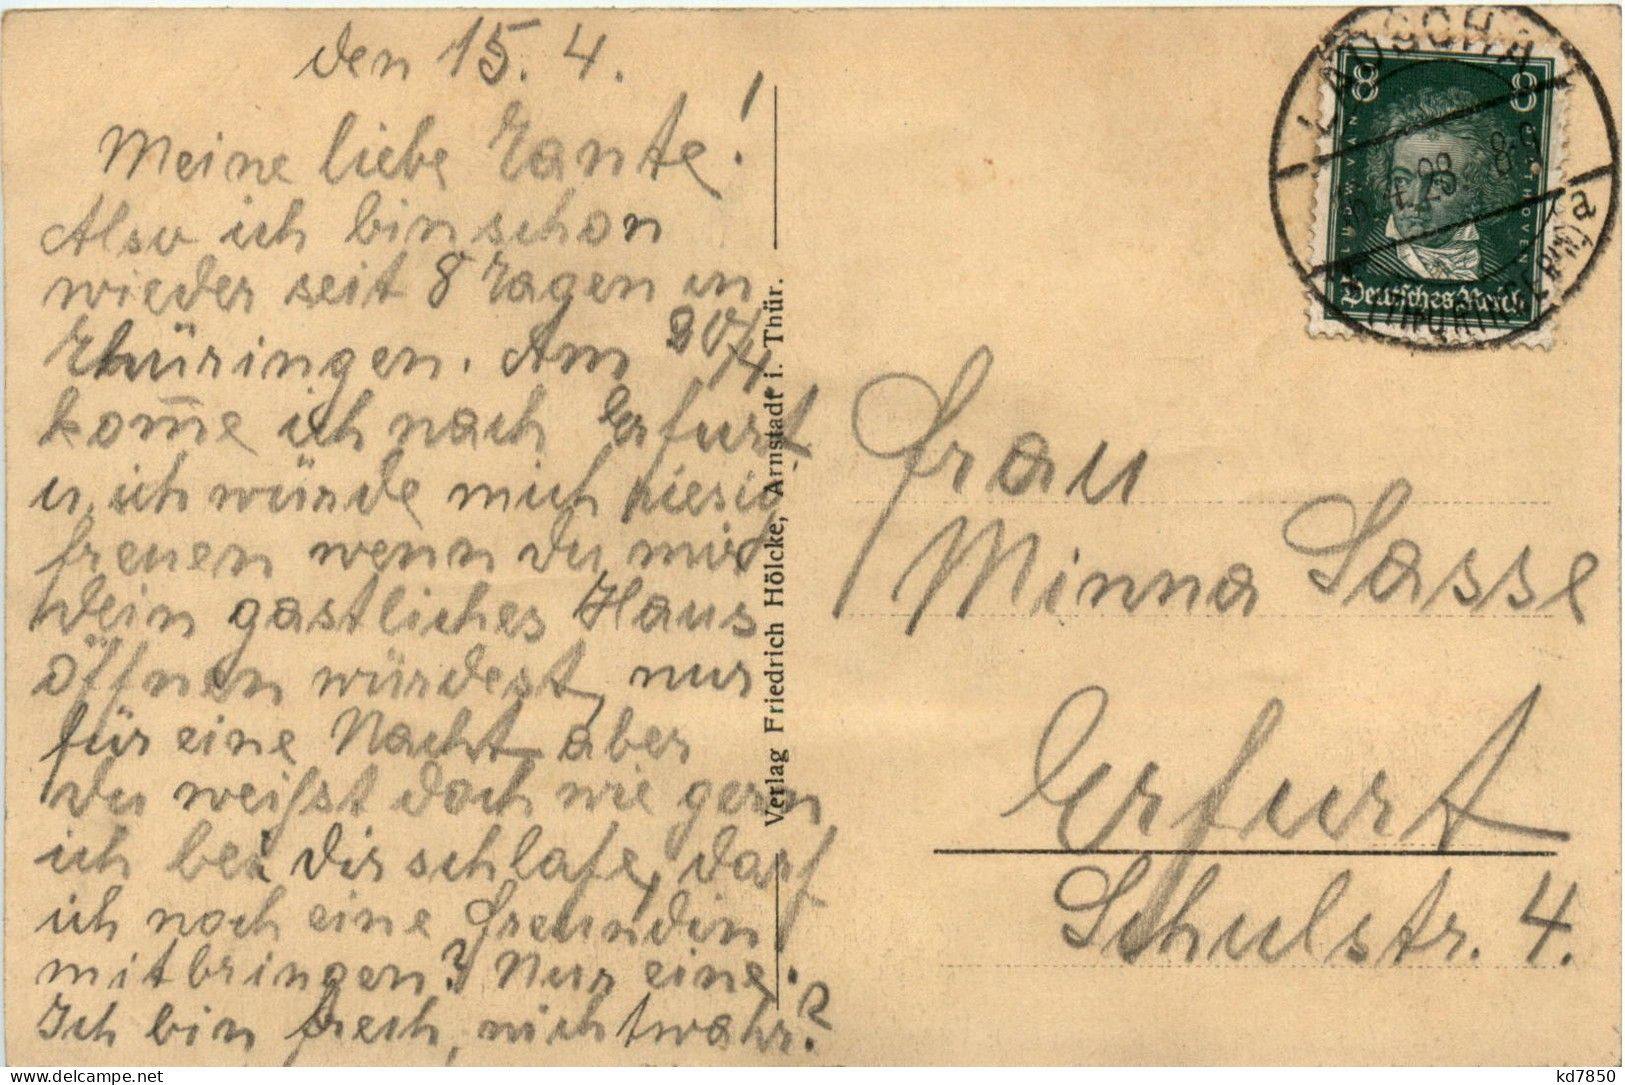 den 15. 4.
Meine liebe Tante!
Also ich bin schon
wieder seit 8 Tagen in
Thüringen. Am 20/4
kom̅e ich nach Erfurt
u. ich würde mich riesig
freuen wenn du mir
dein gastliches Haus
öffnen würdest, nur
für eine Nacht, aber
du weißt doch wie gern
ich bei dir schlafe, darf
ich noch eine Freundin
mitbringen? Nur eine.
Ich bin frech, nicht wahr?
Verlag Friedrich Hölcke, Arnstadt i. Thür.
LAUSCHA
8 8
LUDW. VAN BEETHOVEN
Deutsches Reich
4.28. 8-9
Frau
Minna Sasse
Erfurt
Schulstr. 4.
kd7850